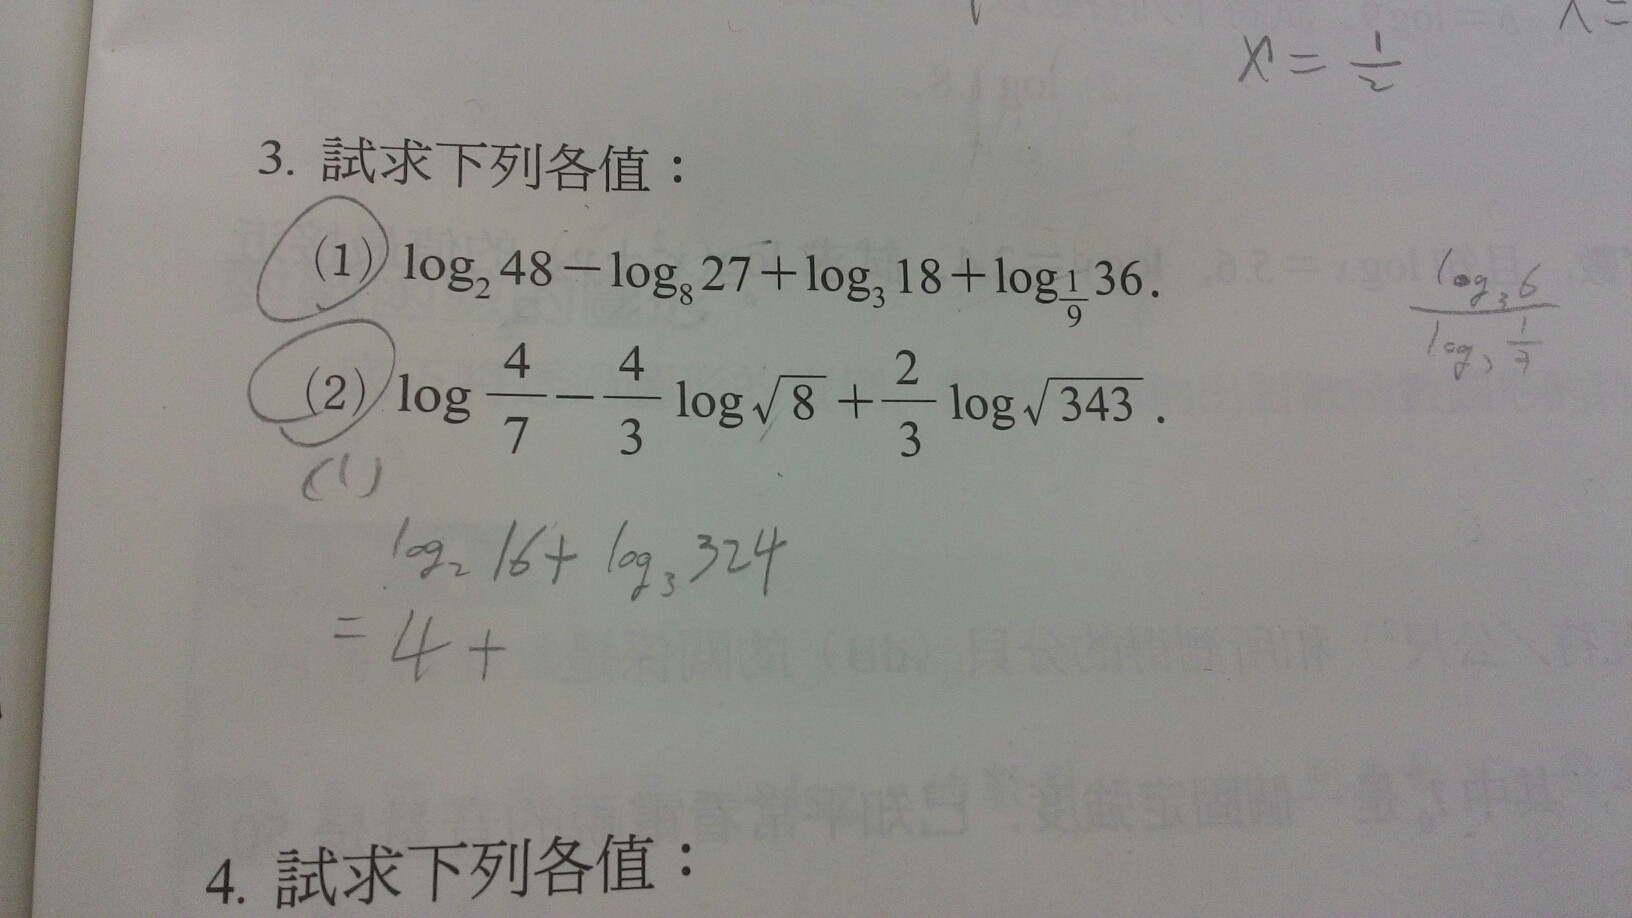 x = 1/2
3. 試求下列各值：
(1) log₂48−log₈27+log₃18+log_{1/9}36.
(2) log 4/7 − 4/3 log√8 + 2/3 log√343 .
(1)
log₂16+ log₃324
= 4 +
4. 試求下列各值：